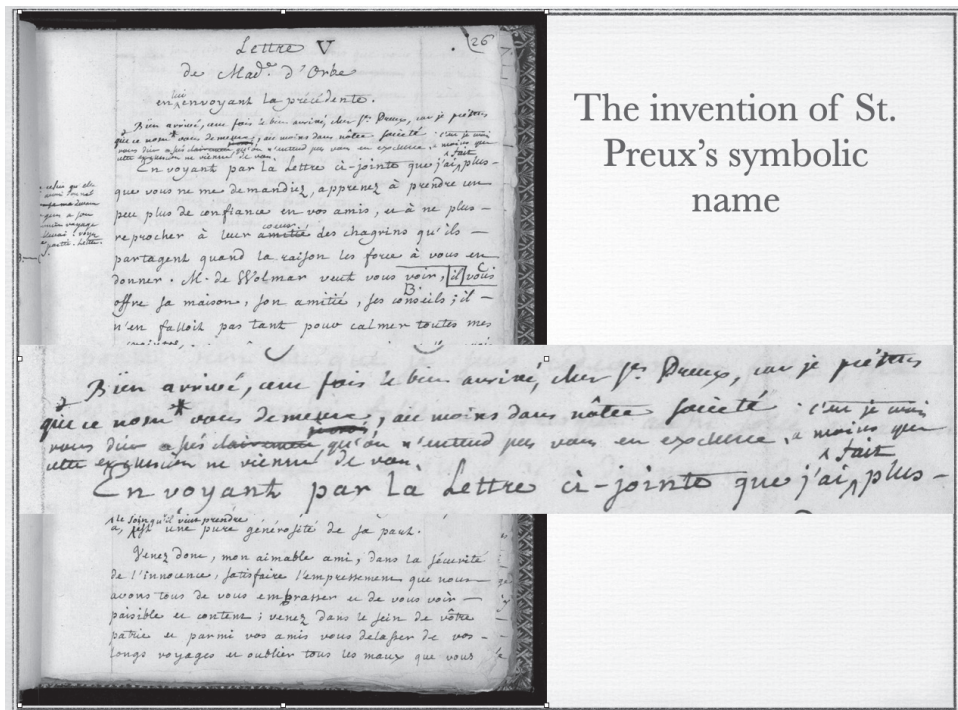 Lettre V
26
de Mad.e d'Orbe
en lui envoyant la précédente.
Bien arrivé, cent fois le bien arrivé, cher St. Preux, car je prétens
que ce nom * vous demeure, au moins dans nôtre société.
vous dire qu'on n'entend pas vous en exclurre, à moins que
cette exclusion ne vienne de vous.
En voyant par la Lettre ci-jointe que j'ai fait plus-
que vous ne me demandiez, apprenez à prendre un
peu plus de confiance en vos amis, et à ne plus-
reprocher à leur amitié coeur des chagrins qu'ils-
partagent quand la raison les force à vous en
donner. M. de Wolmar veut vous voir, il vous
offre sa maison, son amitié, ses conseils; il-
n'en falloit pas tant pour calmer toutes mes
Bien arrivé, cent fois le bien arrivé, cher St. Preux, car je prétens
que ce nom * vous demeure, au moins dans nôtre société. c'est je crois
vous dire assés qu'on n'entend pas vous en exclurre, à moins que
cette exclusion ne vienne de vous.
En voyant par la Lettre ci-jointe que j'ai fait plus-
le soin qu'il veut prendre
une pure générosité de sa part.
Venez donc, mon aimable ami, dans la sécurité
de l'innocence, satisfaire l'empressement que nous-
avons tous de vous embrasser et de vous voir-
paisible et content; venez dans le sein de vôtre
patrie et parmi vos amis vous delasser de vos-
longs voyages et oublier tous les maux que vous
The invention of St.
Preux's symbolic
name